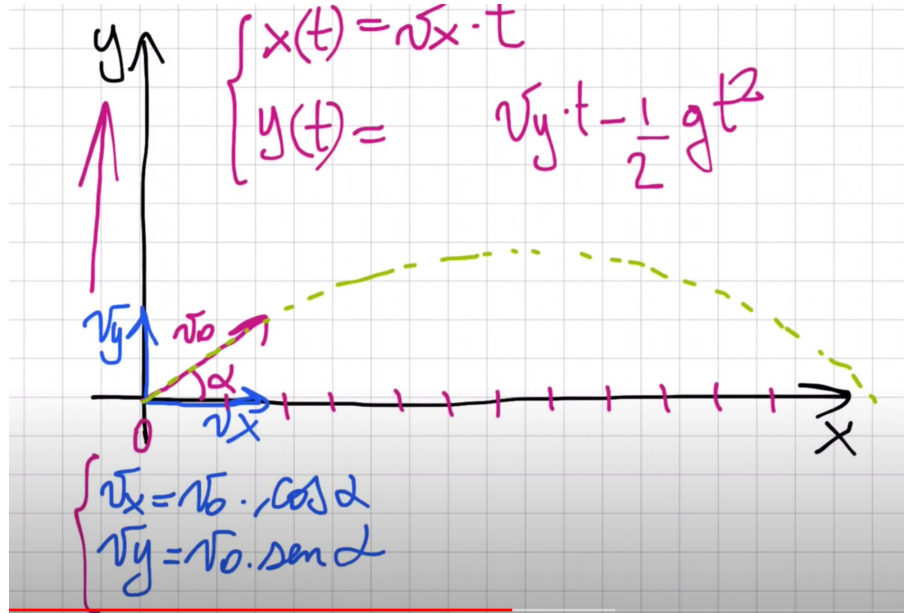 y
x(t) = vx · t
y(t) = vy · t - 1/2 gt²
vy
v₀
α
vx
0
x
vx = v₀ · cos α
vy = v₀ · sen α